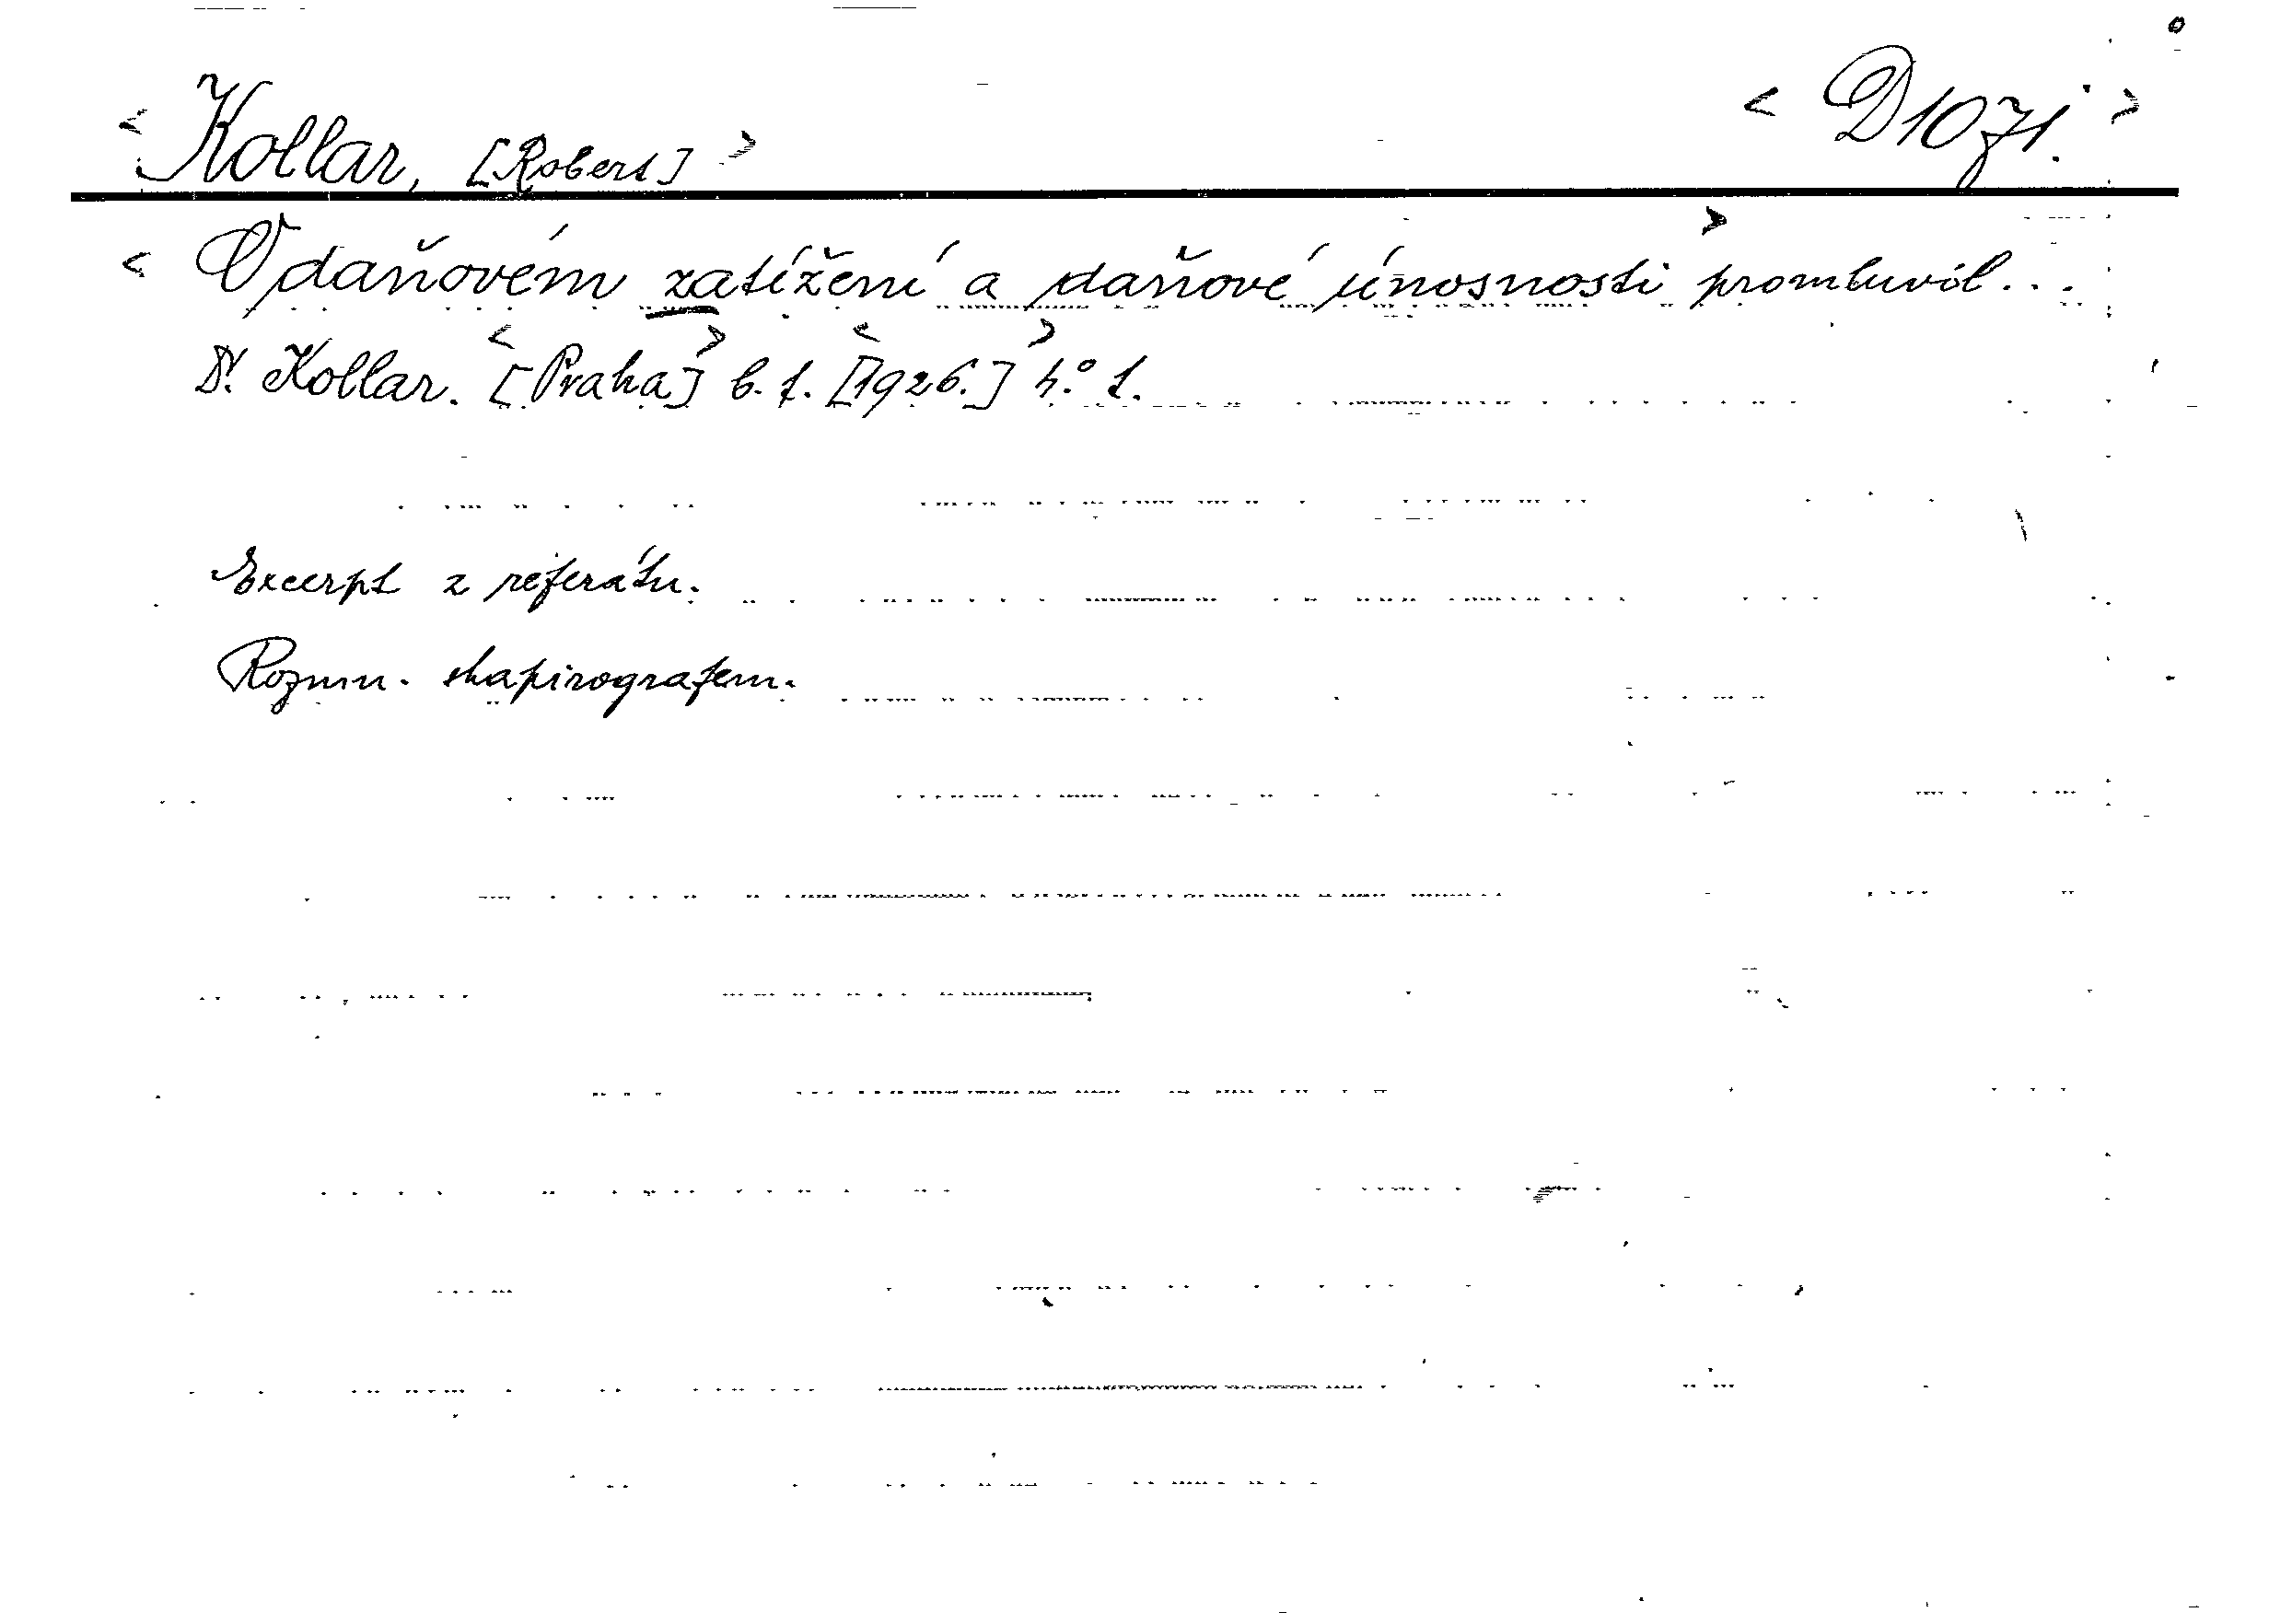 < Kollar, [Robert] > < D1071. >
< O daňovém zatížení a daňové únosnosti > promluvil...
Dr. Kollar. < [Praha] > b. t. < [1926.] > 4.° 1.
Excerpt z referátu.
Rozmn. shapirografem.